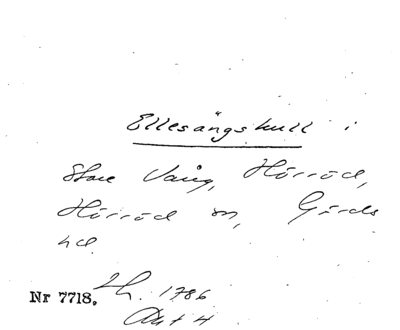 Ellesängskull i
Store Vång, Hörröd,
Hörröd sn, Gärds
hd
Lh. 1786
Nr 7718.
Akt 4